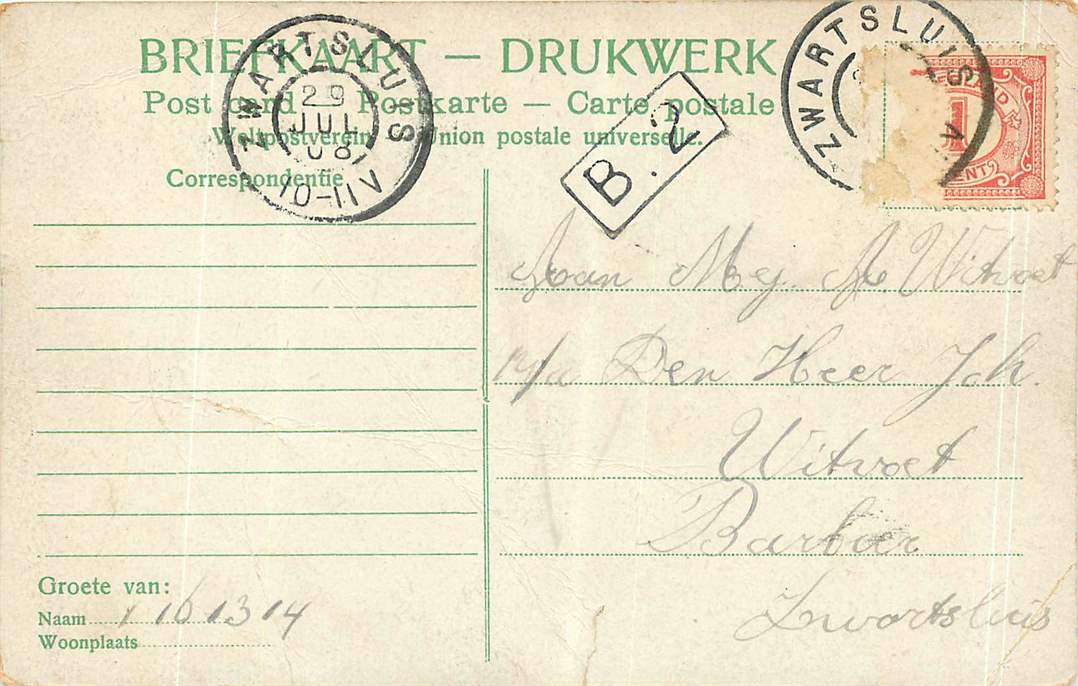 BRIEFKAART — DRUKWERK
Post card — Postkarte — Carte postale
Weltpostverein Union postale universelle.
Correspondentie
ZWARTSLUIS
29
JUL
08
10-11V
B. 2
ZWARTSLUIS
1
CENT
Aan Mej. A Witvoet
p/a Den Heer Joh.
Witvoet
Barbier
Zwartsluis
Groete van:
Naam 1 10 13 14
Woonplaats